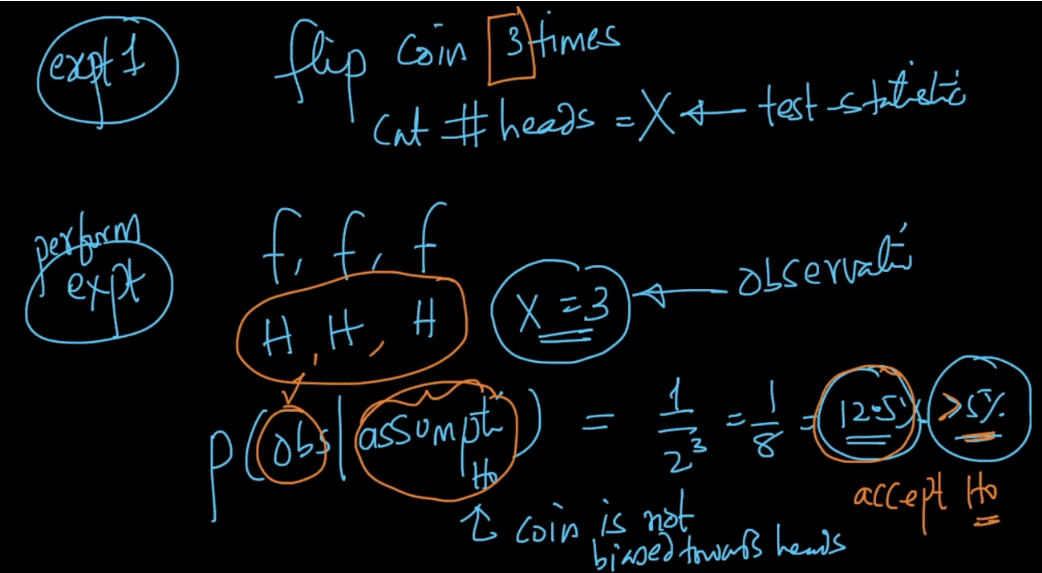 expt 1
flip coin 3 times
cnt # heads = X ← test-statistic
perform
expt
f, f, f
H, H, H
X = 3 ← observati
P(obs | assumpt) = 1/2³ = 1/8 = 12.5% > 5%
H₀
accept H₀
↑ coin is not
biased towards heads